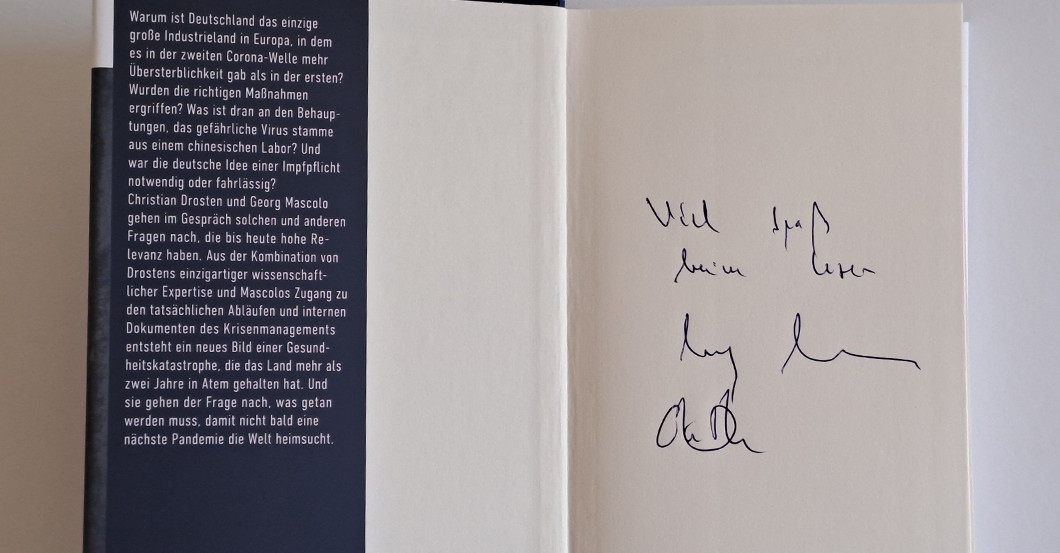 Warum ist Deutschland das einzige
große Industrieland in Europa, in dem
es in der zweiten Corona-Welle mehr
Übersterblichkeit gab als in der ersten?
Wurden die richtigen Maßnahmen
ergriffen? Was ist dran an den Behaup-
tungen, das gefährliche Virus stamme
aus einem chinesischen Labor? Und
war die deutsche Idee einer Impfpflicht
notwendig oder fahrlässig?
Christian Drosten und Georg Mascolo
gehen im Gespräch solchen und anderen
Fragen nach, die bis heute hohe Re-
levanz haben. Aus der Kombination von
Drostens einzigartiger wissenschaft-
licher Expertise und Mascolos Zugang zu
den tatsächlichen Abläufen und internen
Dokumenten des Krisenmanagements
entsteht ein neues Bild einer Gesund-
heitskatastrophe, die das Land mehr als
zwei Jahre in Atem gehalten hat. Und
sie gehen der Frage nach, was getan
werden muss, damit nicht bald eine
nächste Pandemie die Welt heimsucht.
Viel Spaß
beim Lesen